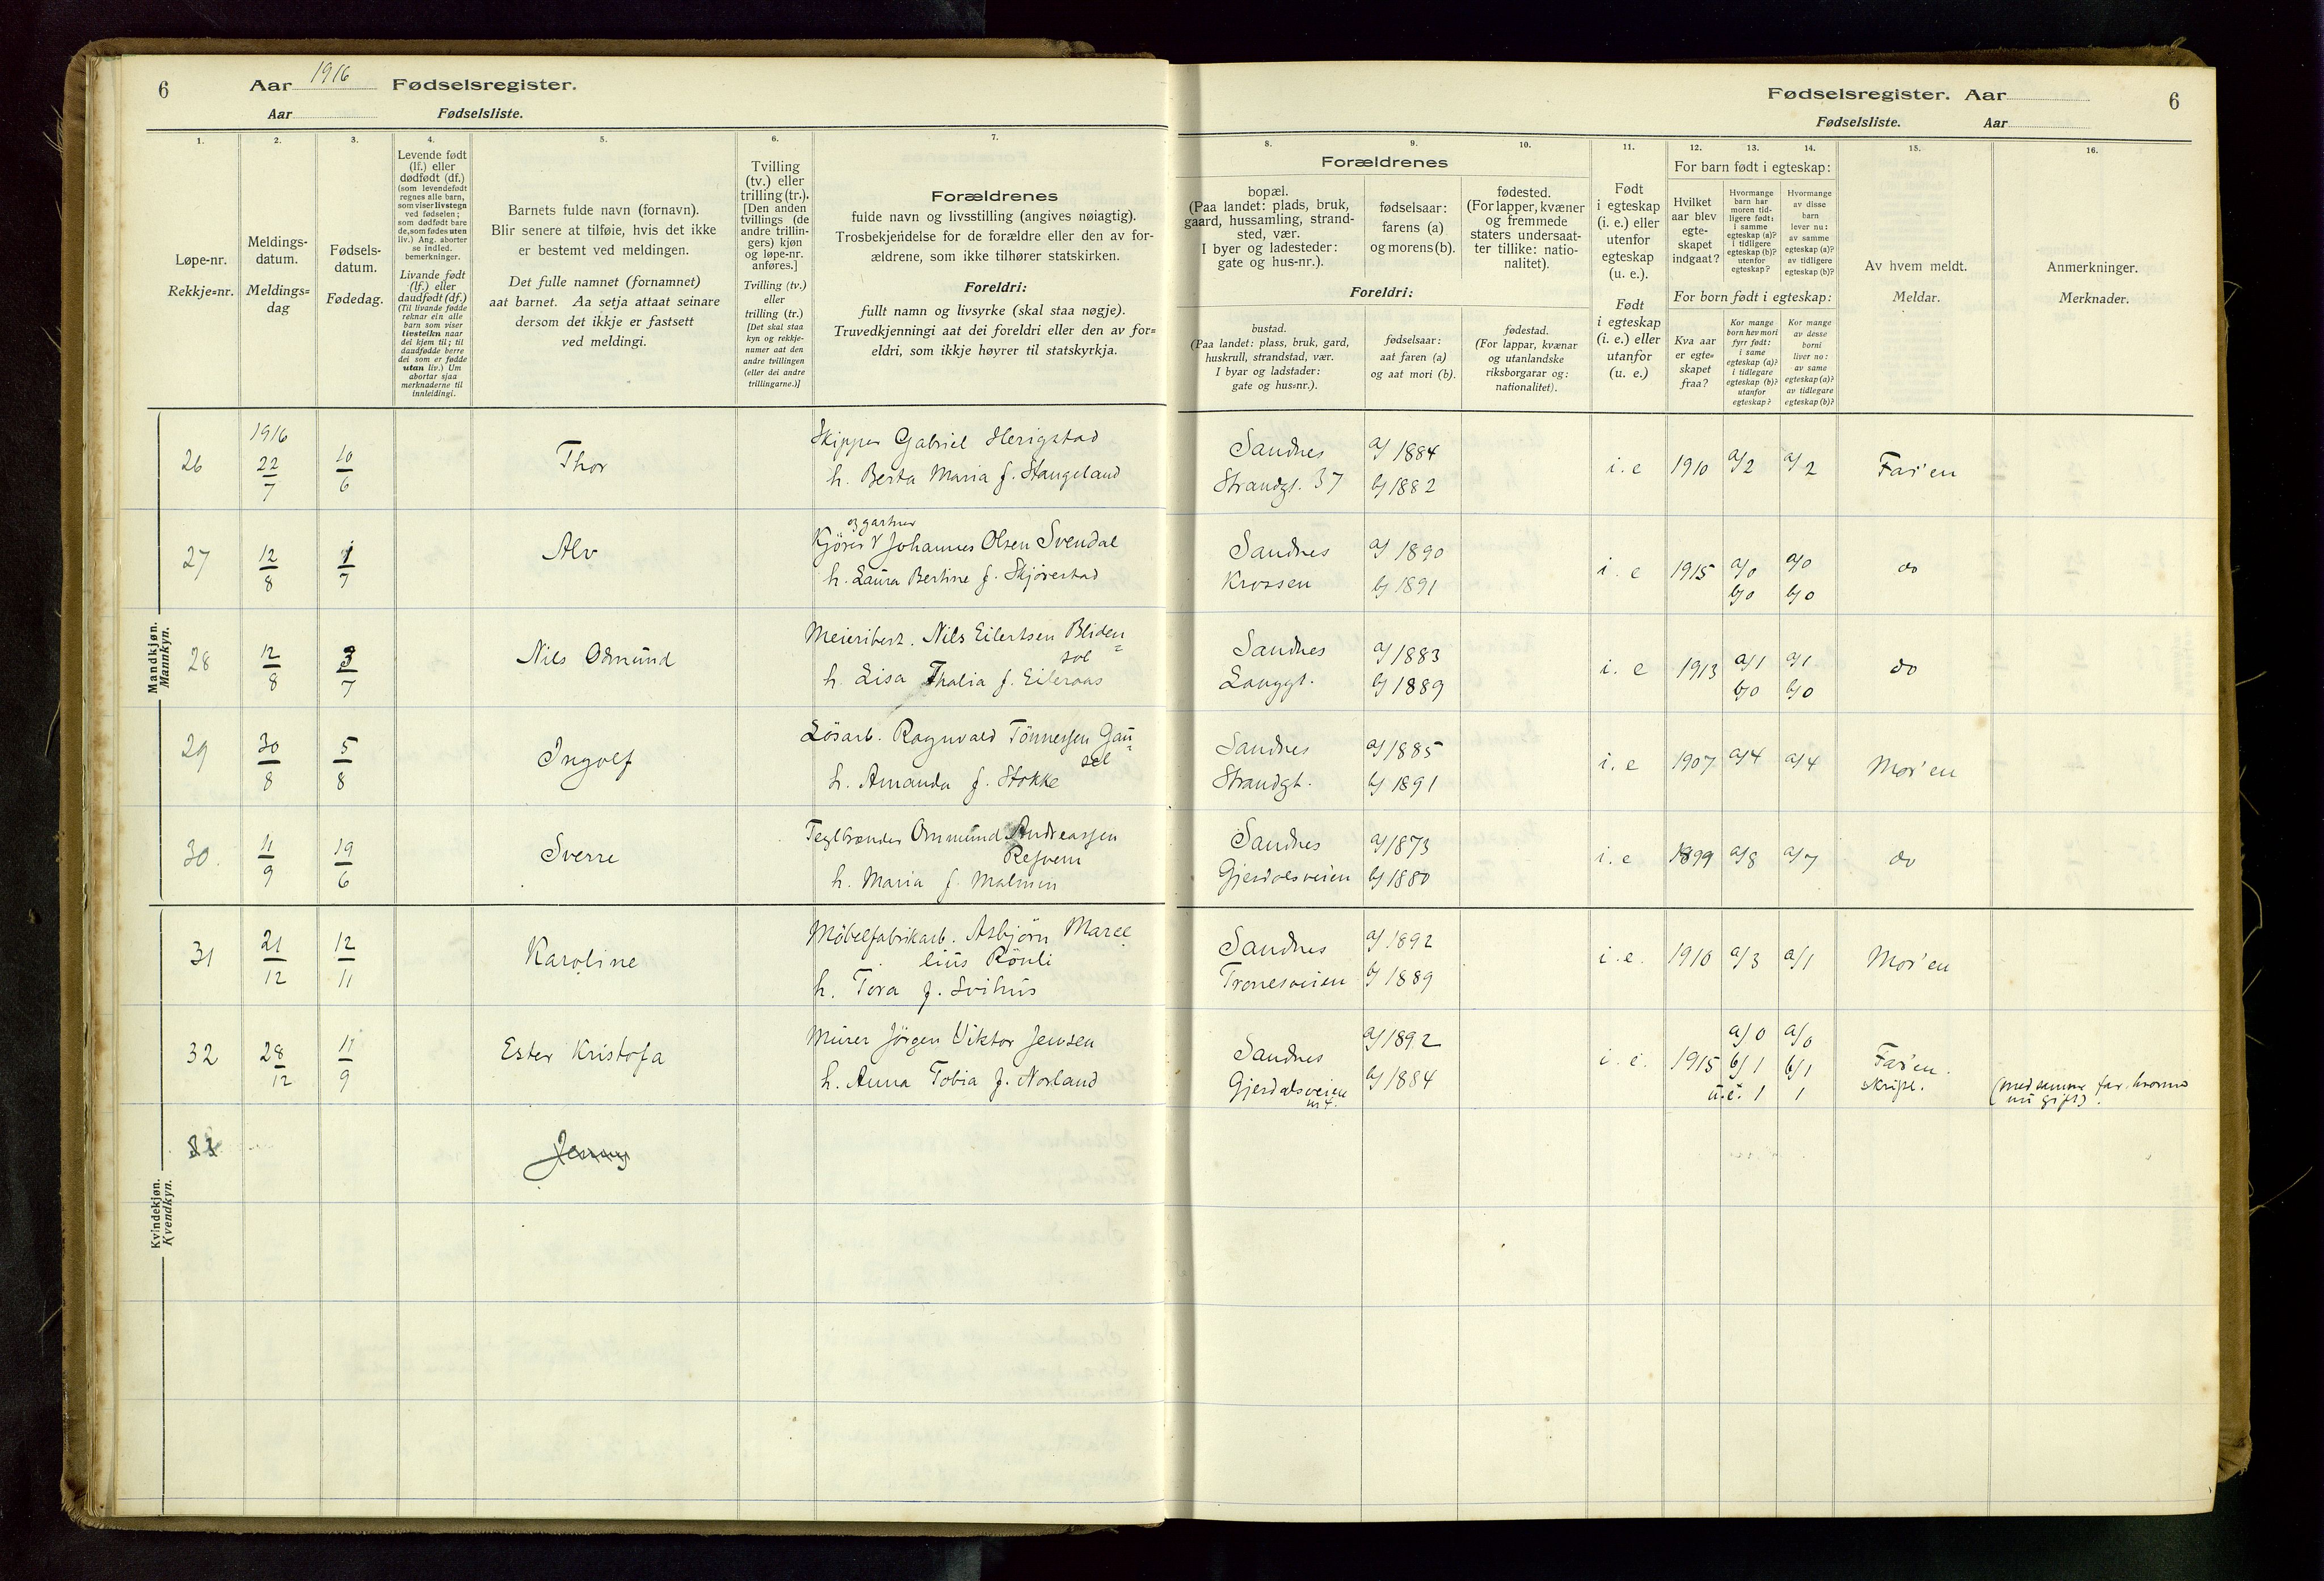 6
Aar 1916 Fødselsregister.
Aar Fødselsliste.
Fødselsregister. Aar
Fødselsliste. Aar
6
1.
Løpe-nr.
Rekkje=nr.
2.
Meldings-
datum.
Meldings=
dag
3.
Fødsels-
datum.
Fødedag.
4.
Levende født
(lf.) eller
dødfødt (df.)
(som levendefødt
regnes alle barn,
som viser livstegn
ved fødselen;
som dødfødt bare
de, som fødes uten
liv.) Ang. aborter
se indled.
bemerkninger.
Livande født
(lf.) eller
daudfødt (df.)
(Til livande fødde
reknar ein alle
barn som viser
livsteikn naar
dei kjem til; til
daudfødde berre
dei som er fødde
utan liv.) Um
abortar sjaa
merknaderne til
innleidingi.
5.
Barnets fulde navn (fornavn).
Blir senere at tilføie, hvis det ikke
er bestemt ved meldingen.
Det fulle namnet (fornamnet)
aat barnet. Aa setja attaat seinare
dersom det ikkje er fastsett
ved meldingi.
6.
Tvilling
(tv.) eller
trilling (tr.).
[Den anden
tvillings (de
andre trillin-
gers) kjøn
og løpe-nr.
anføres.]
Tvilling (tv.)
eller
trilling (tr.)
[Det skal staa
kyn og rekkje-
numer aat den
andre tvillingen
(eller dei andre
trillingarne.)]
7.
Forældrenes
fulde navn og livsstilling (angives nøiagtig).
Trosbekjendelse for de forældre eller den av for-
ældrene, som ikke tilhører statskirken.
Foreldri:
fullt namn og livsyrke (skal staa nøgje).
Truvedkjenningi aat dei foreldri eller den av for=
eldri, som ikkje høyrer til statskyrkja.
8. 9. 10.
Forældrenes
bopæl.
(Paa landet: plads, bruk,
gaard, hussamling, strand-
sted, vær.
I byer og ladesteder:
gate og hus-nr.).
fødselsaar:
farens (a)
og morens (b).
fødested.
(For lapper, kvæner
og fremmede
staters undersaat-
ter tillike: natio-
nalitet).
Foreldri:
bustad.
(Paa landet: plass, bruk, gard,
huskrull, strandstad, vær.
I byar og ladstader:
gate og hus=nr.).
fødselsaar:
aat faren (a)
og aat mori (b).
fødestad.
(For lappar, kvænar
og utanlandske
riksborgarar og:
nationalitet).
11.
Født
i egteskap
(i. e.) eller
utenfor
egteskap
(u. e.).
Født
i egteskap
(i. e.) eller
utanfor
(u. e.)
12. 13. 14.
For barn født i egteskap:
Hvilket
aar blev
egte-
skapet
indgaat?
Hvormange
barn har
moren tid-
ligere født:
i samme
egteskap (a)?
i tidligere
egteskap (b)?
utenfor
egteskap?
Hvormange
av disse
barn
lever nu:
av samme
egteskap (a)?
av tidligere
egteskap (b)?
For born født i egteskap:
Kva aar
er egte=
skapet
fraa?
Kor mange
born hev mori
fyrr født:
i same
egteskap (a)?
i tidlegare
egteskap (b)?
utanfor
egteskap?
Kor mange
av desse
borni
liver no:
av same
egteskap (a)?
av tidlegare
egteskap (b)?
15.
Av hvem meldt.
Meldar.
16.
Anmerkninger.
Merknader.
Mandkjøn.
Mannkyn.
26 1916 22/7 10/6 Thor Skipper Gabriel Herigstad
h. Berta Maria f. Stangeland
Sandnes a/ 1884 i. e 1910 a/2 a/2 Far'en
Strandgt. 37 b/ 1882
27 12/8 1/7 Alv
og gartner
Kjører V Johannes Olsen Svendal
h. Laura Bertine f. Skjørestad
Sandnes a/ 1890 i. e 1915 a/0 a/0 do
Krossen b/ 1891 b/0 b/0
28 12/8 3/7 Nils Odmund Meieribest. Nils Eilertsen Bliden=
sol
h. Lisa Thalia f. Eikeraas
Sandnes a/ 1883 i. e 1913 a/1 a/1 do
Langgt. b/ 1889 b/0 b/0
29 30/8 5/8 Ingolf Løsarb. Ragnvald Tønnessen Gau=
sel
h. Amanda f. Stokke
Sandnes a/ 1885 i. e 1907 a/4 a/4 Mor'en
Strandgt. b/ 1891
30. 11/9 19/6 Sverre Teglbrænder Ommund Andreassen
Refvem
h. Maria f. Malmin
Sandnes a/ 1873 i. e 1899 a/8 a/7 do
Gjesdalsveien b/ 1880
Kvindekjøn.
Kvendkyn.
31 21/12 12/11 Karoline Møbelfabrikarb. Asbjørn Marce
lius Rønli
h. Tora f. Svihus
Sandnes a/ 1892 i. e. 1910 a/3 a/1 Mor'en
Tronesveien b/ 1889
32 28/12 11/9 Ester Kristofa Murer Jørgen Viktor Jensen
h. Anna Tobia f. Norland
Sandnes a/ 1892 i. e. 1915 a/0 a/0 Far'en.
Gjesdalsveien b/ 1884 b/1 b/1 skriftl.
nr 4. u. e. 1 1 (med samme far hvormed
nu gift).
33 Jenny